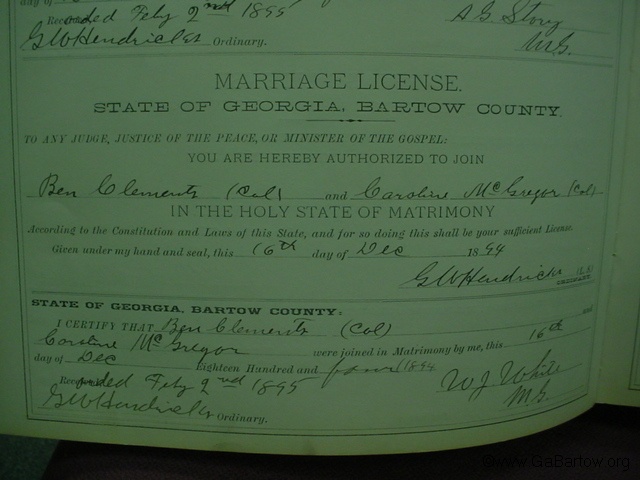 day of
Recorded Feby 2nd 1895
A G. Story
G W Hendricks Ordinary.
M.G.
MARRIAGE LICENSE.
STATE OF GEORGIA, BARTOW COUNTY.
TO ANY JUDGE, JUSTICE OF THE PEACE, OR MINISTER OF THE GOSPEL:
YOU ARE HEREBY AUTHORIZED TO JOIN
Ben Clements (Col) and Caroline McGregor (Col).
IN THE HOLY STATE OF MATRIMONY
According to the Constitution and Laws of this State, and for so doing this shall be your sufficient License.
Given under my hand and seal, this 16th day of Dec 1894
G W Hendricks (L.S.)
ORDINARY.
STATE OF GEORGIA, BARTOW COUNTY:
I CERTIFY THAT Ben Clements (Col) and
Caroline McGregor were joined in Matrimony by me, this 16th
day of Dec Eighteen Hundred and four (1894
Recorded Feby 2nd 1895
W J White
M.G.
G W Hendricks Ordinary.
©www.GaBartow.org